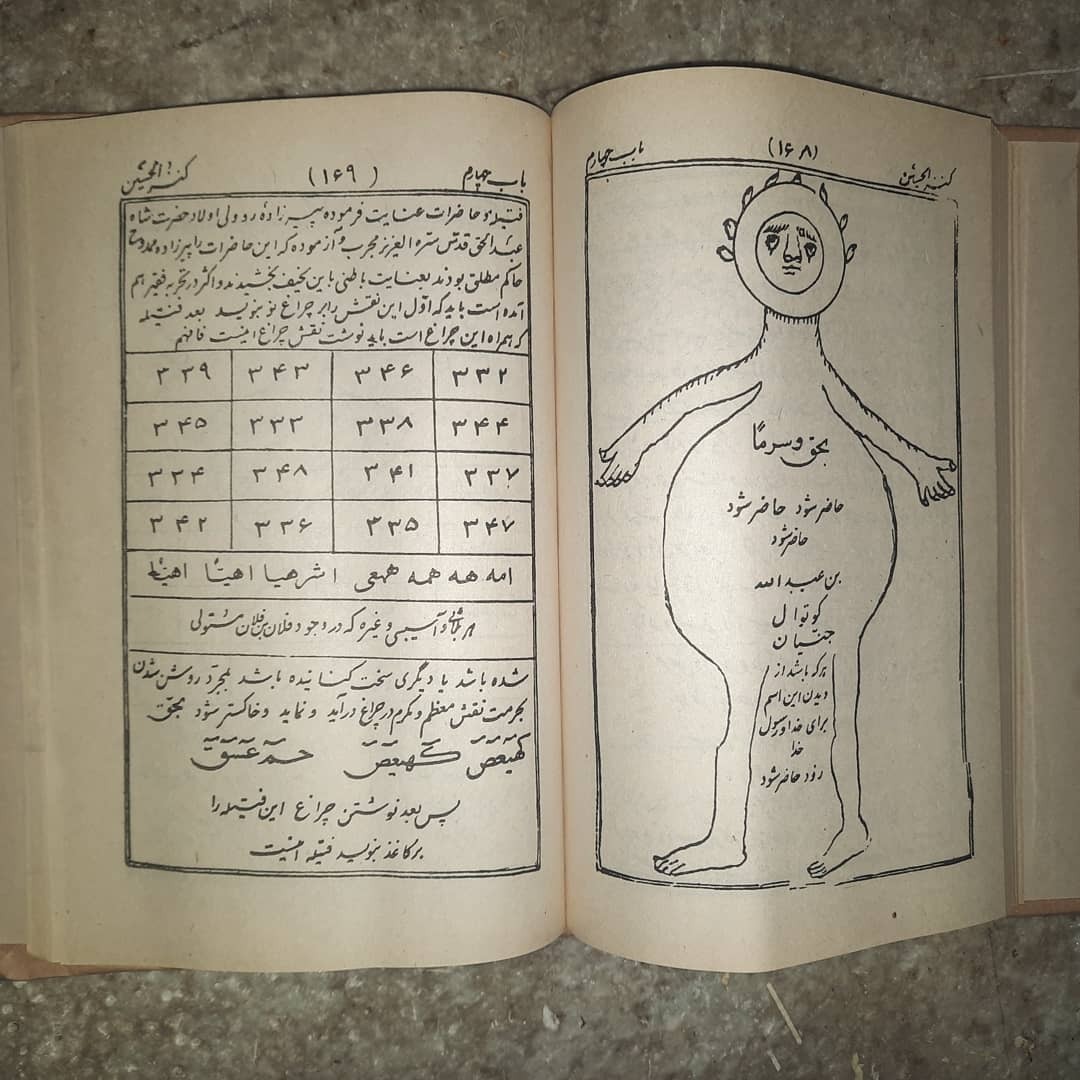 باب چهارم
(۱۶۸)
کنز الحسین
بحق و سرماً
حاضر شود حاضر شود
حاضر شود
بن عبد الله
کوتوال
جنیان
هر که باشد از
دیدن این اسم
برای خدا و رسول
خدا
زود حاضر شود
باب چهارم
(۱۶۹)
کنز الحسین
فتیله و حاضرات عنایت فرموده پیرزادهٔ ردولی اولاد حضرت شاه
عبد الحق قدس سره العزیز مجرب و آزموده که این حاضرات را پیرزاده ممدوح
حاکم مطلق بودند بعنایت باطنی باین نحیف بخشیدند و اکثر در تجربه فقیر هم
آمده است باید که اول این نقش را بر چراغ نو بنویسد بعد فتیله
که همراه این چراغ است باید نوشت نقش چراغ اینست فافهم
۳۳۲ ۳۴۶ ۳۴۳ ۳۳۹
۳۴۴ ۳۳۸ ۳۳۳ ۳۴۵
۳۳۷ ۳۴۱ ۳۴۸ ۳۳۴
۳۴۷ ۳۳۵ ۳۳۶ ۳۴۲
امه هه همه همعی اشرهیا اهیّا اهیّا
هر بلائی و آسیبی و غیره که در وجود فلان بن فلان مستولی
شده باشد یا دیگری سخت کنانیده باشد بمجرد روشن شدن
بحرمت نقش معظم و مکرم در چراغ درآید و نماید و خاکستر شود بحق
کهیعص کهیعص حمعسق
پس بعد نوشتن چراغ این فتیله را
بر کاغذ بنویسد فتیله اینست